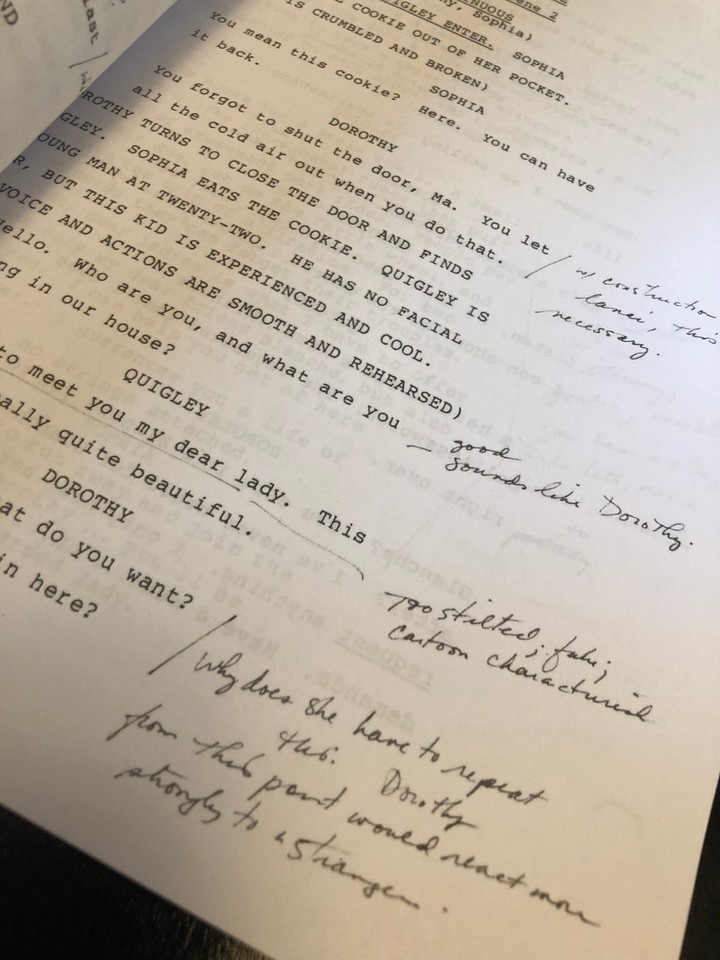 NUOUS
ene 2
hy, Sophia)
IGLEY ENTER. SOPHIA
E COOKIE OUT OF HER POCKET.
IS CRUMBLED AND BROKEN)
SOPHIA
You mean this cookie? Here. You can have
it back.
DOROTHY
You forgot to shut the door, Ma. You let
all the cold air out when you do that.
w/ construction
lanai, this
necessary.
ROTHY TURNS TO CLOSE THE DOOR AND FINDS
GLEY. SOPHIA EATS THE COOKIE. QUIGLEY IS
OUNG MAN AT TWENTY-TWO. HE HAS NO FACIAL
R, BUT THIS KID IS EXPERIENCED AND COOL.
VOICE AND ACTIONS ARE SMOOTH AND REHEARSED)
ello. Who are you, and what are you
ng in our house?
good
sounds like Dorothy.
QUIGLEY
to meet you my dear lady. This
ally quite beautiful.
Too stilted; fake;
cartoon characterish
DOROTHY
at do you want?
in here?
Why does she have to repeat
this. Dorothy
from this point would react more
strongly to a stranger.